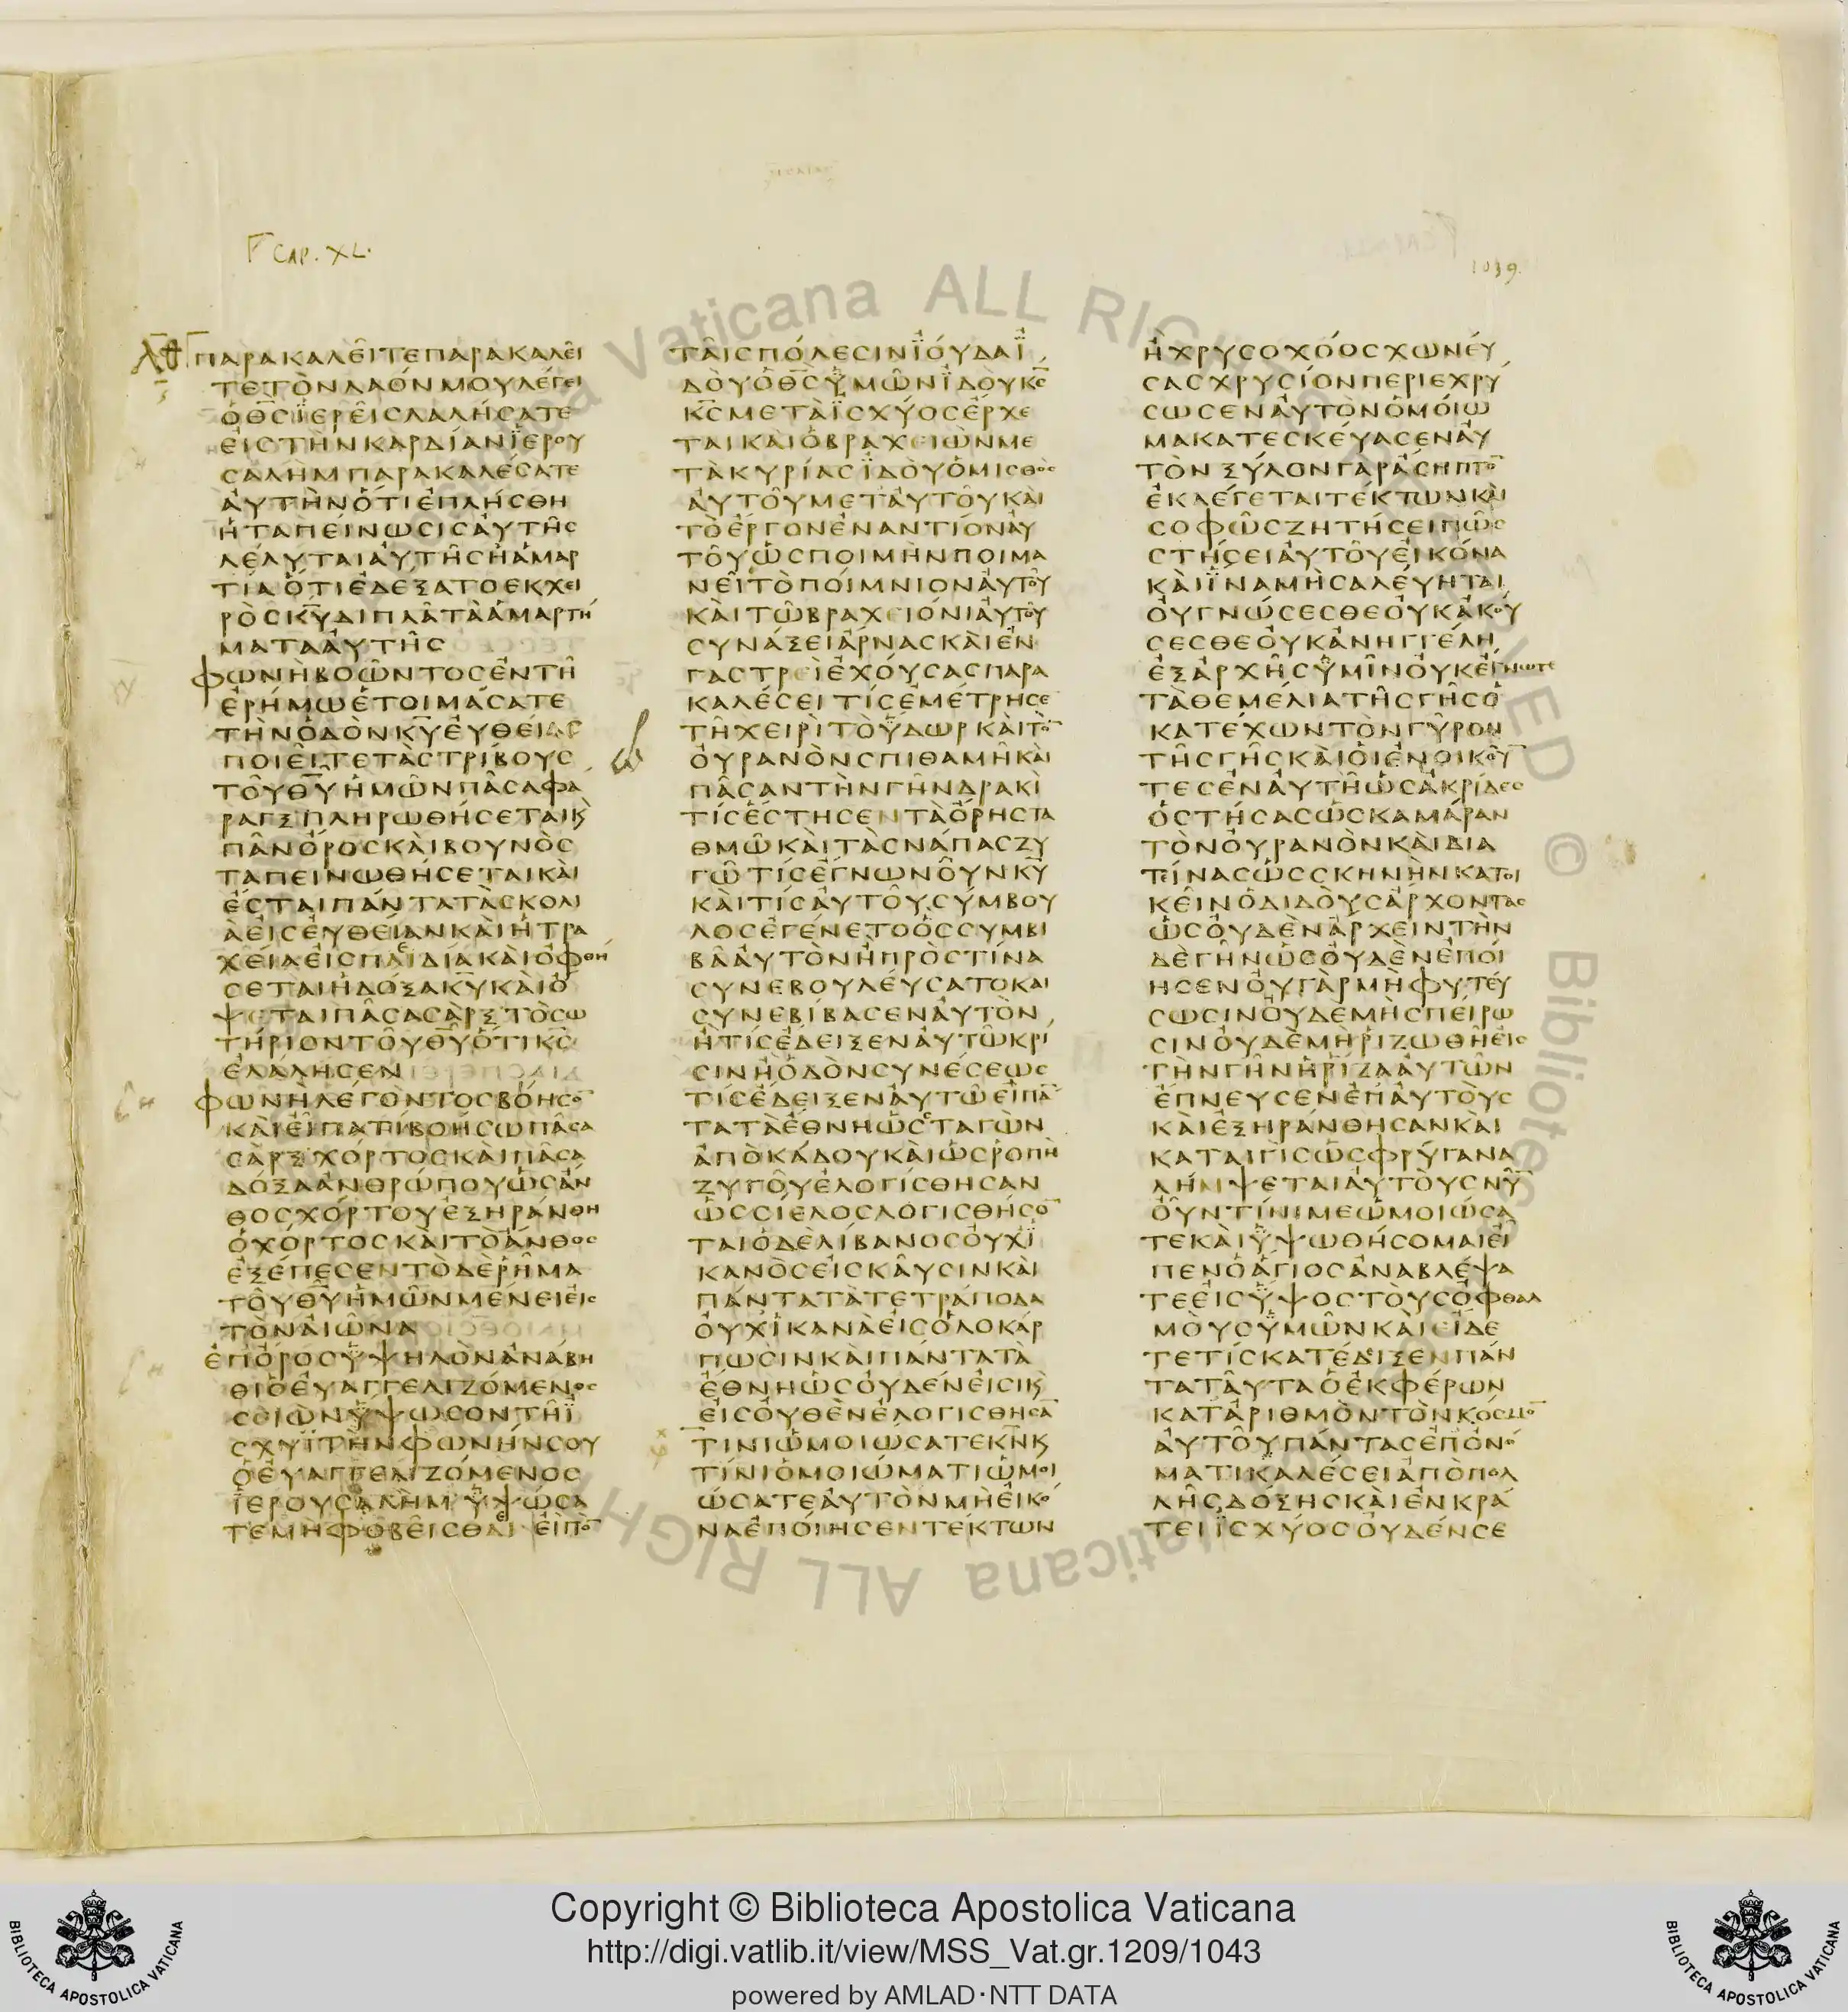 CAP. XL.
1039.
λθ
ΠΑΡΑΚΑΛΕΙΤΕΠΑΡΑΚΑΛΕΙ
ΤΕΤΟΝΛΑΟΝΜΟΥΛΕΓΕΙ
ΟΘΣΙΕΡΕΙΣΛΑΛΗΣΑΤΕ
ΕΙΣΤΗΝΚΑΡΔΙΑΝΙΕΡΟΥ
ΣΑΛΗΜΠΑΡΑΚΑΛΕΣΑΤΕ
ΑΥΤΗΝΟΤΙΕΠΛΗΣΘΗ
ΗΤΑΠΕΙΝΩΣΙΣΑΥΤΗΣ
ΛΕΛΥΤΑΙΑΥΤΗΣΗΑΜΑΡ
ΤΙΑΟΤΙΕΔΕΞΑΤΟΕΚΧΕΙ
ΡΟΣΚΥΔΙΠΛΑΤΑΑΜΑΡΤΗ
ΜΑΤΑΑΥΤΗΣ
ΦΩΝΗΒΟΩΝΤΟΣΕΝΤΗ
ΕΡΗΜΩΕΤΟΙΜΑΣΑΤΕ
ΤΗΝΟΔΟΝΚΥΕΥΘΕΙΑΣ
ΠΟΙΕΙΤΕΤΑΣΤΡΙΒΟΥΣ
ΤΟΥΘΥΗΜΩΝΠΑΣΑΦΑ
ΡΑΓΞΠΛΗΡΩΘΗΣΕΤΑΙΚ
ΠΑΝΟΡΟΣΚΑΙΒΟΥΝΟΣ
ΤΑΠΕΙΝΩΘΗΣΕΤΑΙΚΑΙ
ΕΣΤΑΙΠΑΝΤΑΤΑΣΚΟΛΙ
ΑΕΙΣΕΥΘΕΙΑΝΚΑΙΗΤΡΑ
ΧΕΙΑΕΙΣΠΑΙΔΙΑΚΑΙΟΦΘΗ
ΣΕΤΑΙΗΔΟΞΑΚΥΚΑΙΟ
ΨΕΤΑΙΠΑΣΑΣΑΡΞΤΟΣΩ
ΤΗΡΙΟΝΤΟΥΘΥΟΤΙΚΣ
ΕΛΑΛΗΣΕΝ
ΦΩΝΗΛΕΓΟΝΤΟΣΒΟΗΣΟ
ΚΑΙΕΙΠΑΤΙΒΟΗΣΩΠΑΣΑ
ΣΑΡΞΧΟΡΤΟΣΚΑΙΠΑΣΑ
ΔΟΞΑΑΝΘΡΩΠΟΥΩΣΑΝ
ΘΟΣΧΟΡΤΟΥΕΞΗΡΑΝΘΗ
ΟΧΟΡΤΟΣΚΑΙΤΟΑΝΘΟΣ
ΕΞΕΠΕΣΕΝΤΟΔΕΡΗΜΑ
ΤΟΥΘΥΗΜΩΝΜΕΝΕΙΕΙΣ
ΤΟΝΑΙΩΝΑ
ΕΠΟΡΟΣΥΨΗΛΟΝΑΝΑΒΗ
ΘΙΟΕΥΑΓΓΕΛΙΖΟΜΕΝΟΣ
ΣΕΙΩΝΥΨΩΣΟΝΤΗΙ
ΣΧΥΙΤΗΝΦΩΝΗΝΣΟΥ
ΟΕΥΑΓΓΕΛΙΖΟΜΕΝΟΣ
ΙΕΡΟΥΣΑΛΗΜΥΨΩΣΑ
ΤΕΜΗΦΟΒΕΙΣΘΑΙ ΕΙΠΟ
ΤΑΙΣΠΟΛΕΣΙΝΙΟΥΔΑΙ
ΔΟΥΟΘΣΥΜΩΝΙΔΟΥΚΣ
ΚΣΜΕΤΑΙΣΧΥΟΣΕΡΧΕ
ΤΑΙΚΑΙΟΒΡΑΧΕΙΩΝΜΕ
ΤΑΚΥΡΙΑΣΙΔΟΥΟΜΙΣΘΟΣ
ΑΥΤΟΥΜΕΤΑΥΤΟΥΚΑΙ
ΤΟΕΡΓΟΝΕΝΑΝΤΙΟΝΑΥ
ΤΟΥΩΣΠΟΙΜΗΝΠΟΙΜΑ
ΝΕΙΤΟΠΟΙΜΝΙΟΝΑΥΤΟΥ
ΚΑΙΤΩΒΡΑΧΕΙΟΝΙΑΥΤΟΥ
ΣΥΝΑΞΕΙΑΡΝΑΣΚΑΙΕΝ
ΓΑΣΤΡΕΙΕΧΟΥΣΑΣΠΑΡΑ
ΚΑΛΕΣΕΙΤΙΣΕΜΕΤΡΗΣΕ
ΤΗΧΕΙΡΙΤΟΥΔΩΡΚΑΙΤΟ
ΟΥΡΑΝΟΝΣΠΙΘΑΜΗΚΑΙ
ΠΑΣΑΝΤΗΝΓΗΝΔΡΑΚΙ
ΤΙΣΕΣΤΗΣΕΝΤΑΟΡΗΣΤΑ
ΘΜΩΚΑΙΤΑΣΝΑΠΑΣΖΥ
ΓΩΤΙΣΕΓΝΩΝΟΥΝΚΥ
ΚΑΙΤΙΣΑΥΤΟΥΣΥΜΒΟΥ
ΛΟΣΕΓΕΝΕΤΟΟΣΣΥΜΒΙ
ΒΑΑΥΤΟΝΗΠΡΟΣΤΙΝΑ
ΣΥΝΕΒΟΥΛΕΥΣΑΤΟΚΑΙ
ΣΥΝΕΒΙΒΑΣΕΝΑΥΤΟΝ
ΗΤΙΣΕΔΕΙΞΕΝΑΥΤΩΚΡΙ
ΣΙΝΗΟΔΟΝΣΥΝΕΣΕΩΣ
ΤΙΣΕΔΕΙΞΕΝΑΥΤΩΕΙΠΑ
ΤΑΤΑΕΘΝΗΩΣΣΤΑΓΩΝ
ΑΠΟΚΑΔΟΥΚΑΙΩΣΡΟΠΗ
ΖΥΓΟΥΕΛΟΓΙΣΘΗΣΑΝ
ΩΣΣΙΕΛΟΣΛΟΓΙΣΘΗΣΟ
ΤΑΙΟΔΕΛΙΒΑΝΟΣΟΥΧΙ
ΚΑΝΟΣΕΙΣΚΑΥΣΙΝΚΑΙ
ΠΑΝΤΑΤΑΤΕΤΡΑΠΟΔΑ
ΟΥΧΙΚΑΝΑΕΙΣΟΛΟΚΑΡ
ΠΩΣΙΝΚΑΙΠΑΝΤΑΤΑ
ΕΘΝΗΩΣΟΥΔΕΝΕΙΣΙΚ
ΕΙΣΟΥΘΕΝΕΛΟΓΙΣΘΗΣΑ
ΤΙΝΙΩΜΟΙΩΣΑΤΕΚΝΚ
ΤΙΝΙΟΜΟΙΩΜΑΤΙΩΜΟΙ
ΩΣΑΤΕΑΥΤΟΝΜΗΕΙΚΟ
ΝΑΕΠΟΙΗΣΕΝΤΕΚΤΩΝ
ΗΧΡΥΣΟΧΟΟΣΧΩΝΕΥ
ΣΑΣΧΡΥΣΙΟΝΠΕΡΙΕΧΡΥ
ΣΩΣΕΝΑΥΤΟΝΟΜΟΙΩ
ΜΑΚΑΤΕΣΚΕΥΑΣΕΝΑΥ
ΤΟΝΞΥΛΟΝΓΑΡΑΣΗΠΤΟ
ΕΚΛΕΓΕΤΑΙΤΕΚΤΩΝΚΑΙ
ΣΟΦΩΣΖΗΤΗΣΕΙΠΩΣ
ΣΤΗΣΕΙΑΥΤΟΥΕΙΚΟΝΑ
ΚΑΙΙΝΑΜΗΣΑΛΕΥΗΤΑΙ
ΟΥΓΝΩΣΕΣΘΕΟΥΚΑΚΟΥ
ΣΕΣΘΕΟΥΚΑΝΗΓΓΕΛΗ
ΕΞΑΡΧΗΣΥΜΙΝΟΥΚΕΓΝΩΤΕ
ΤΑΘΕΜΕΛΙΑΤΗΣΓΗΣΟ
ΚΑΤΕΧΩΝΤΟΝΓΥΡΟΝ
ΤΗΣΓΗΣΚΑΙΟΙΕΝΟΙΚΟΥ
ΤΕΣΕΝΑΥΤΗΩΣΑΚΡΙΔΕΣ
ΟΣΤΗΣΑΣΩΣΚΑΜΑΡΑΝ
ΤΟΝΟΥΡΑΝΟΝΚΑΙΔΙΑ
ΤΕΙΝΑΣΩΣΣΚΗΝΗΝΚΑΤΟΙ
ΚΕΙΝΟΔΙΔΟΥΣΑΡΧΟΝΤΑΣ
ΩΣΟΥΔΕΝΑΡΧΕΙΝΤΗΝ
ΔΕΓΗΝΩΣΟΥΔΕΝΕΠΟΙ
ΗΣΕΝΟΥΓΑΡΜΗΦΥΤΕΥ
ΣΩΣΙΝΟΥΔΕΜΗΣΠΕΙΡΩ
ΣΙΝΟΥΔΕΜΗΡΙΖΩΘΗΕΙΣ
ΤΗΝΓΗΝΗΡΙΖΑΑΥΤΩΝ
ΕΠΝΕΥΣΕΝΕΠΑΥΤΟΥΣ
ΚΑΙΕΞΗΡΑΝΘΗΣΑΝΚΑΙ
ΚΑΤΑΙΓΙΣΩΣΦΡΥΓΑΝΑ
ΛΗΜΨΕΤΑΙΑΥΤΟΥΣΝΥ
ΟΥΝΤΙΝΙΜΕΩΜΟΙΩΣΑ
ΤΕΚΑΙΥΨΩΘΗΣΟΜΑΙΕΙ
ΠΕΝΟΑΓΙΟΣΑΝΑΒΛΕΨΑ
ΤΕΕΙΣΥΨΟΣΤΟΥΣΟΦΘΑΛ
ΜΟΥΣΥΜΩΝΚΑΙΕΙΔΕ
ΤΕΤΙΣΚΑΤΕΔΙΞΕΝΠΑΝ
ΤΑΤΑΥΤΑΟΕΚΦΕΡΩΝ
ΚΑΤΑΡΙΘΜΟΝΤΟΝΚΟΣΜΟ
ΑΥΤΟΥΠΑΝΤΑΣΕΠΟΝΟ
ΜΑΤΙΚΑΛΕΣΕΙΑΠΟΠΟΛ
ΛΗΣΔΟΞΗΣΚΑΙΕΝΚΡΑ
ΤΕΙΙΣΧΥΟΣΟΥΔΕΝΣΕ
Vaticana ALL RIGHTS RESERVED © Biblioteca Vaticana ALL RIGH
Copyright © Biblioteca Apostolica Vaticana
http://digi.vatlib.it/view/MSS_Vat.gr.1209/1043
powered by AMLAD·NTT DATA
BIBLIOTECA APOSTOLICA VATICANA
BIBLIOTECA APOSTOLICA VATICANA